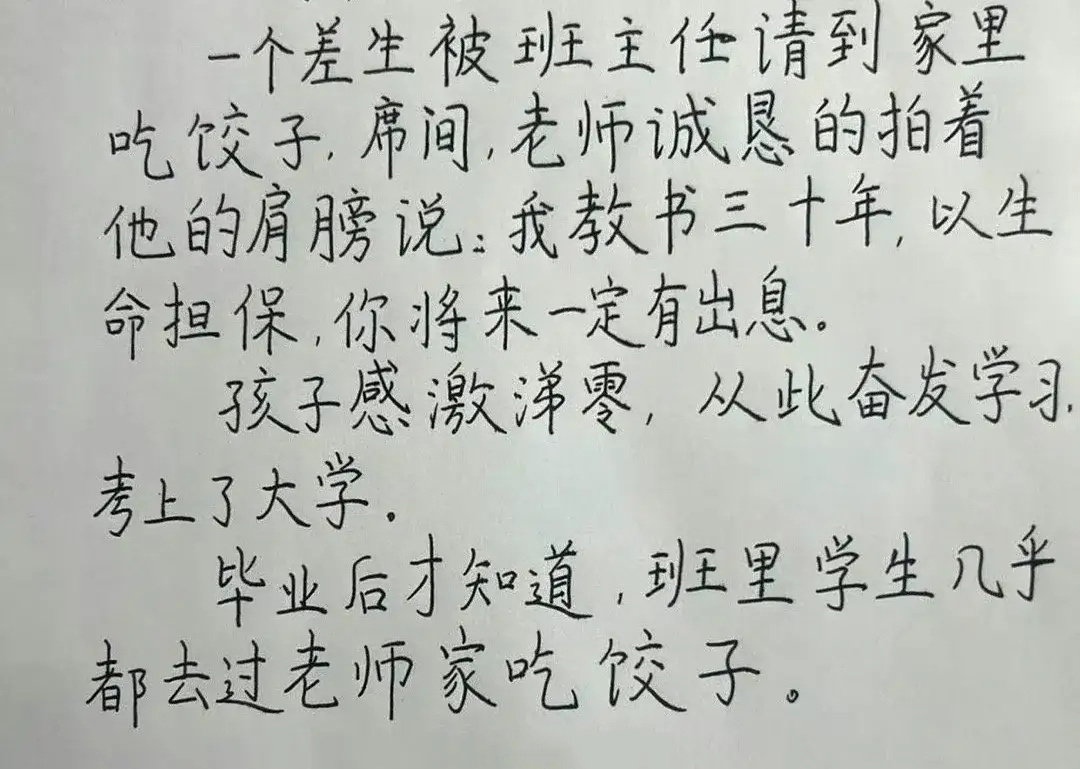 一个差生被班主任请到家里
吃饺子,席间,老师诚恳的拍着
他的肩膀说:我教书三十年,以生
命担保,你将来一定有出息。
孩子感激涕零,从此奋发学习,
考上了大学.
毕业后才知道,班里学生几乎
都去过老师家吃饺子。